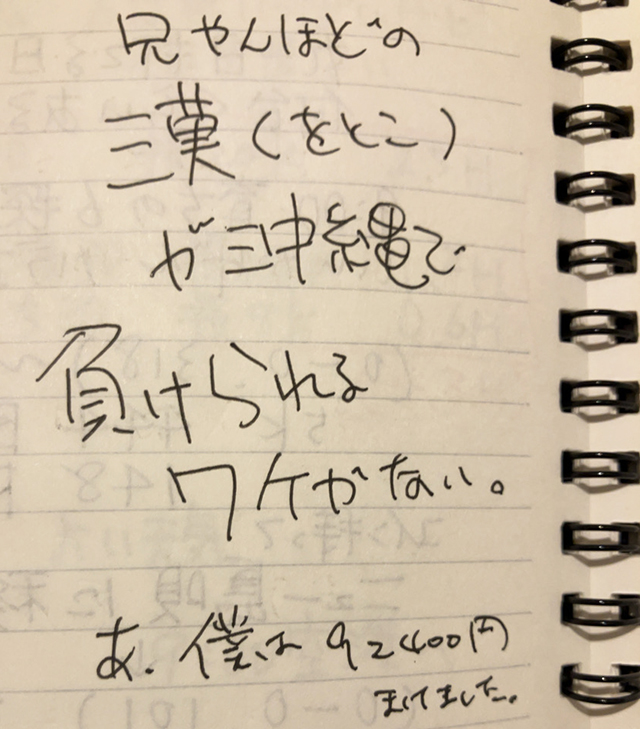 兄やんほどの
漢(をとこ)
が沖縄で
負けられる
ワケがない。
あ、僕は92400円
まけました。